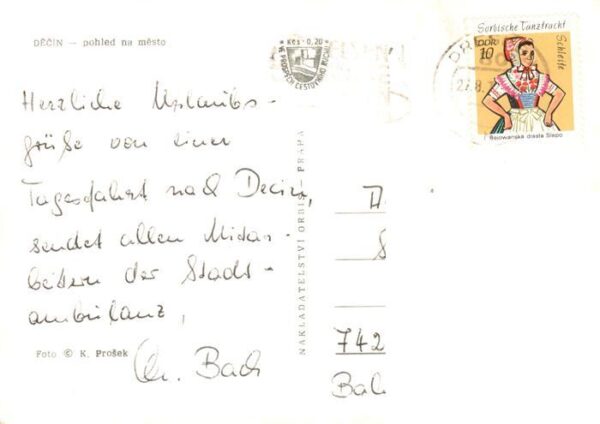 DĚČÍN — pohled na město
Kčs 0,20
VE PROSPĚCH CESTOVNÍHO RUCHU
Sorbische Tanztracht
Schleife
DDR
10
Rejowanska drasta Slepo
DR
27.8.
Herzliche Urlaubs-
grüße von einer
Tagesfahrt nach Decin,
sendet allen Mitar-
beitern der Stadt-
ambulanz,
Ch. Bach
Foto © K. Prošek
NAKLADATELSTVÍ ORBIS — PRAHA
742